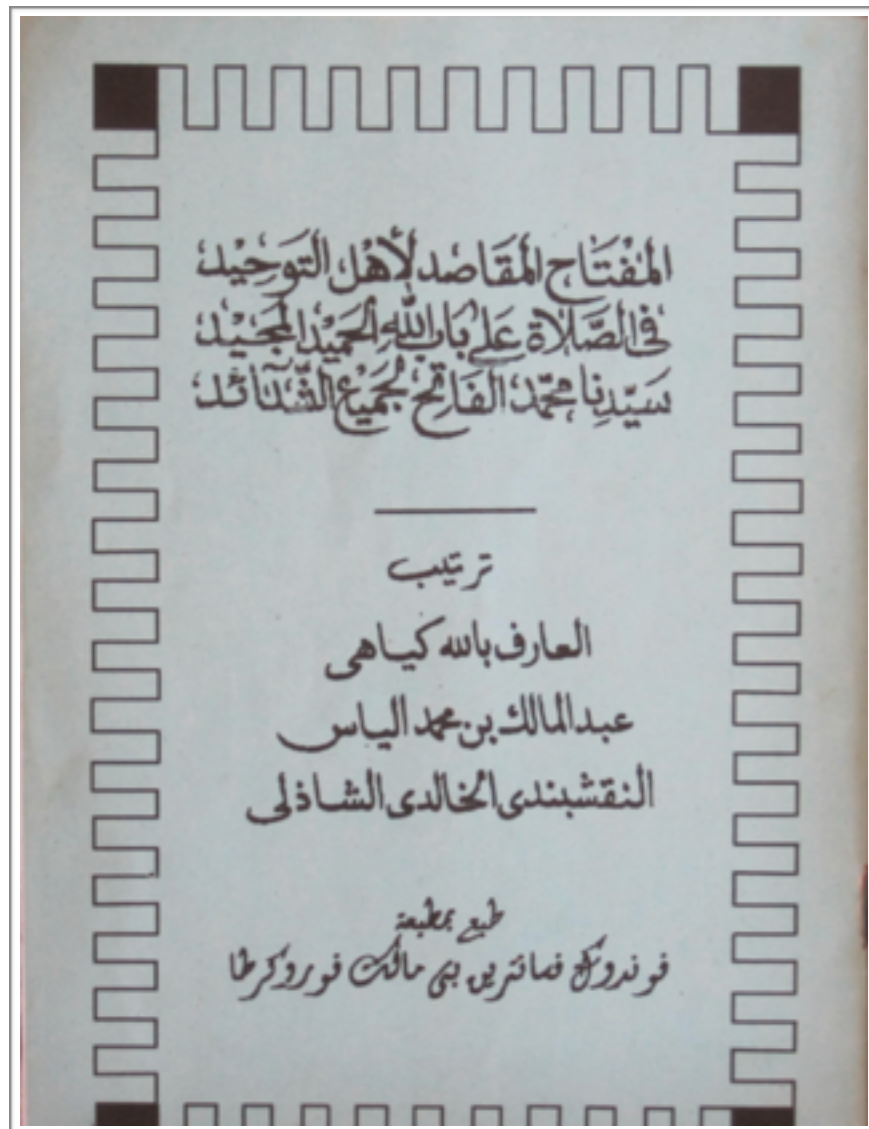 المِفْتَاح المَقَاصد لأَهْل التَوحِيْد
فى الصَّلَاة عَلى بَاب اللهِ الحَمِيْد المَجِيْد
سَيِّدِنا محمّد الفَاتِح لجَمِيْع الشَّدَآئد
ترتيب
العارف بالله كياهى
عبد المالك بن محمد الياس
النقشبندى الخالدى الشاذلى
طبع بمطبعة
فوندوك فسانترين بنى مالك فوروكرطا